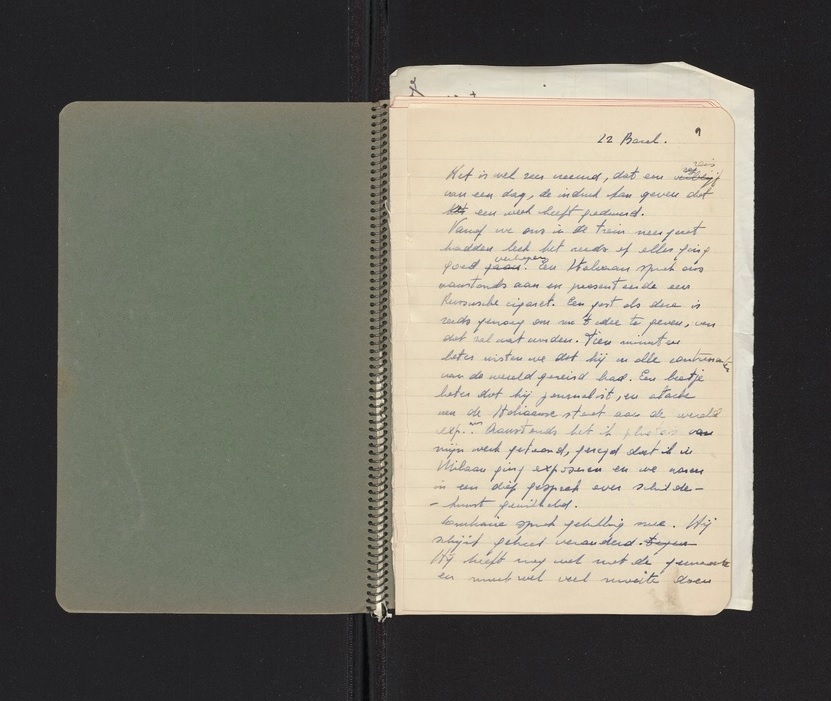 22 Basel. 9
Het is wel zeer vreemd, dat een reis
van een dag, de indruk kan geven dat
een week heeft geduurd.
Vanaf we ons in de trein neergezet
hadden leek het reeds of alles ging
goed verlopen. Een Italiaan sprak ons
aanstonds aan en presenteerde een
Russische cigaret. Een gest als deze is
reeds genoeg om me t idee te geven, van
dat zal wat worden. Tien minuten
later wisten we dat hij in alle
van de wereld gereisd had. Een beetje
later dat hij journalist, en attaché
van de Italiaanse staat aan de wereld
exp. Aanstonds liet ik photos van
mijn werk getoond, gezegd dat ik in
Milaan ging exposeren en we waren
in een diep gesprek over schilde-
- kunst gewikkeld.
sprak gelukkig mee. Hij
schijnt geheel veranderd. tegen
Hij heeft nog wel met de
en moet wel veel moeite doen